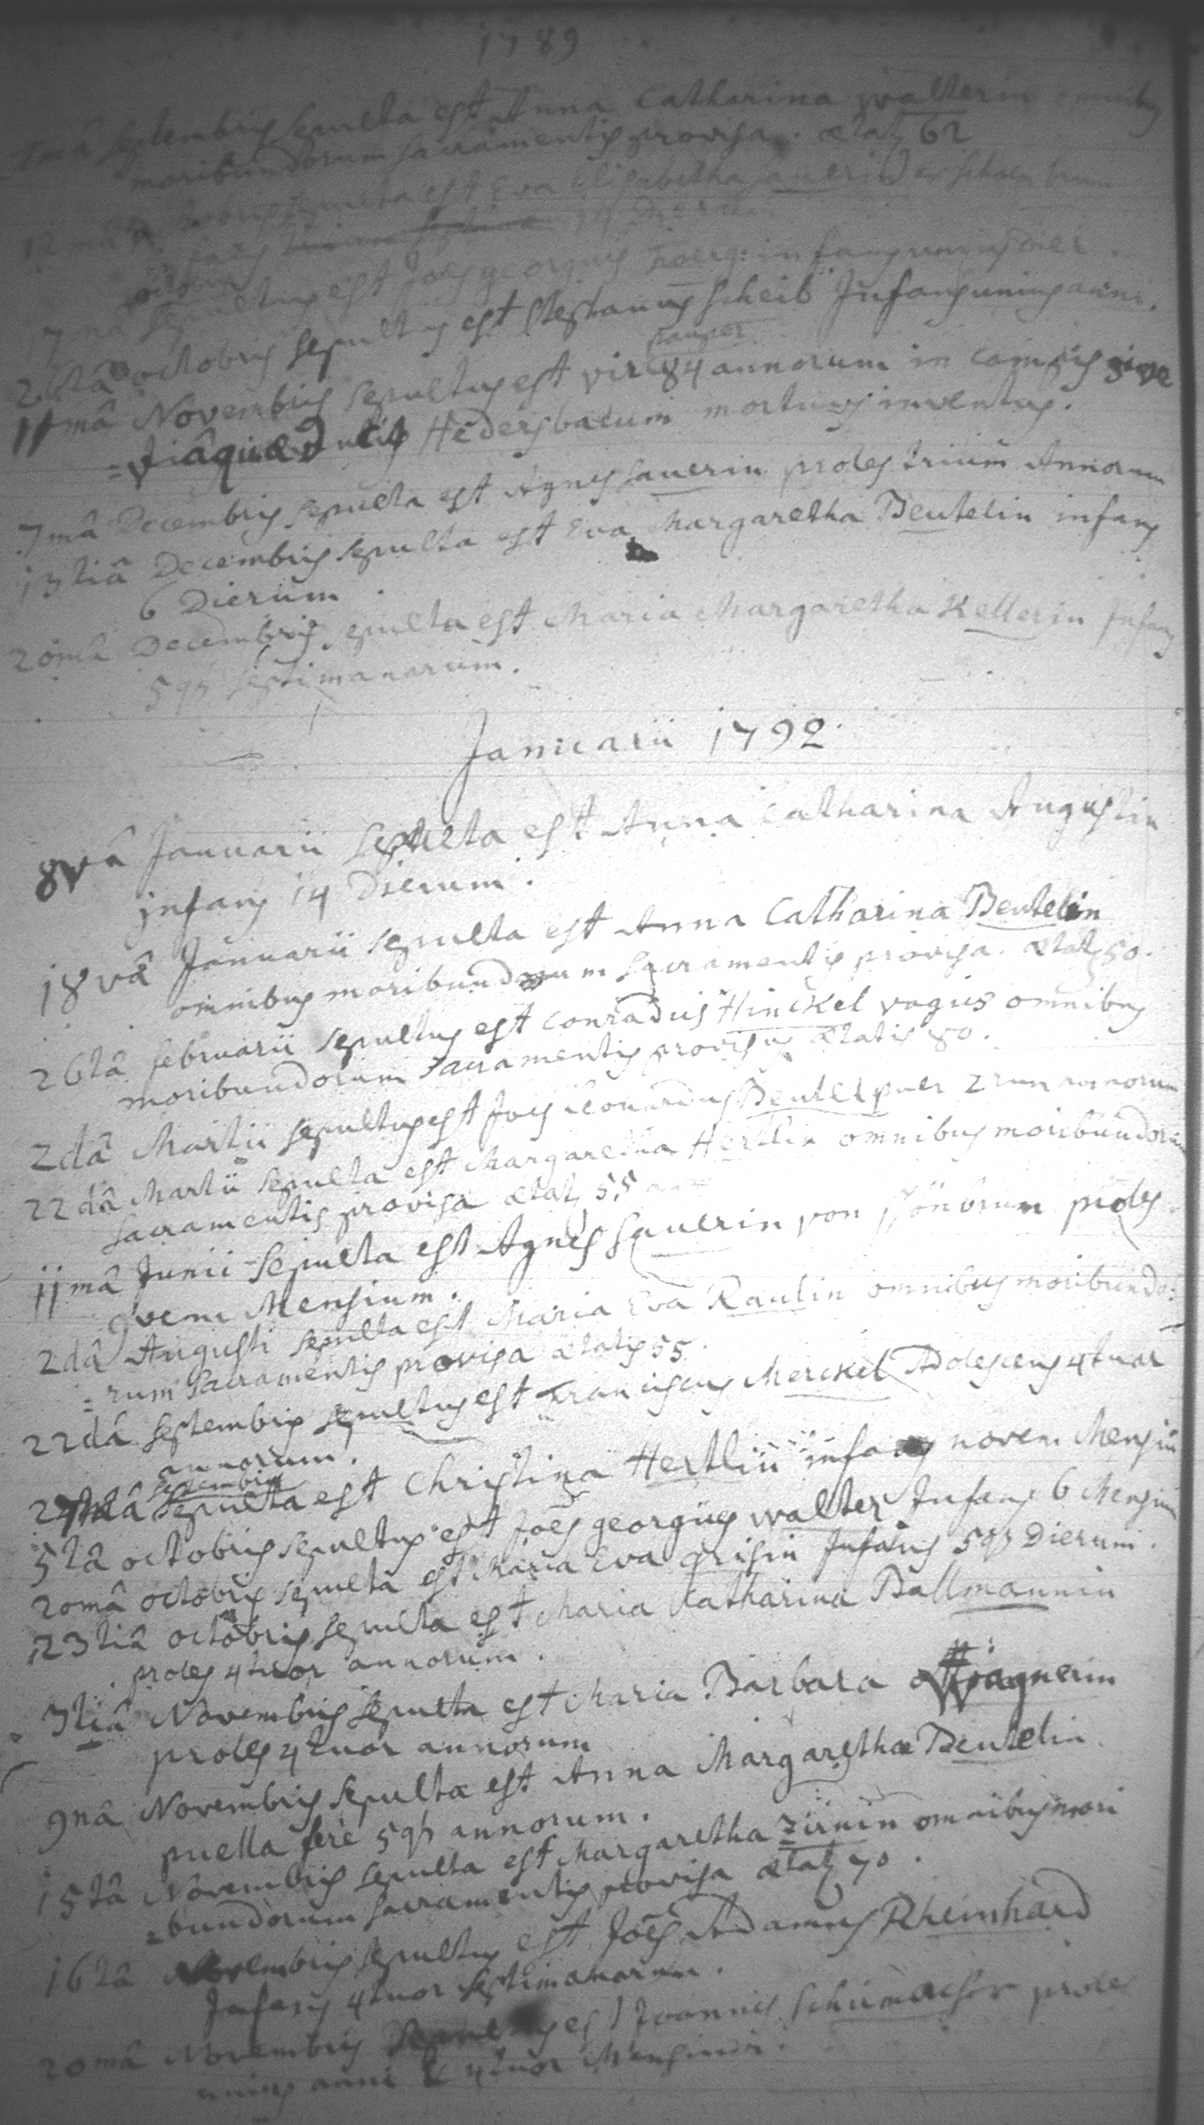 1789
septembris sepulta est Anna Catharina walterin omnibus
moribundorum sacramentis provisa. ætat. 62
sepulta est Eva Elisabetha sauerin
octobris
7ma sepultus est Joes georgius infans unius
26ta octobris sepultus est stephanus scheib Infans unius anni.
pauper
11ma Novembris sepultus est vir 84 annorum in campis sive
=viâ Hedersbacum mortuus inventus.
7ma Decembris sepulta est Agnes sauerin proles trium Annorum
13tiâ Decembris sepulta est Eva Margaretha Beutelin infans
6 Dierum.
20mâ Decembris sepulta est Maria Margaretha Kellerin Infans
5qs septimanarum.
Januarii 1792.
8vâ Januarii sepulta est Anna Catharina Augustin
infans 14 Dierum.
18vâ Januarii sepulta est Anna Catharina Beutelin
omnibus moribundorum sacramentis provisa. ætat. 50.
26tâ februarii sepultus est Conradus Hinckel vagus omnibus
moribundorum sacramentis provisus ætatis 80.
2dâ Martii sepultus est Joes leonardus Beutel puer 2rum annorum
22dâ Martii sepulta est Margaretha Hertlin omnibus moribundorum
sacramentis provisa ætat. 55
11mâ Junii sepulta est Agnes sauerin von proles
9vem Mensium.
2dâ Augusti sepulta est Maria Eva Raulin omnibus moribundo=
=rum sacramentis provisa ætatis 55.
22dâ septembris sepultus est Franciscus Merckel Adolescens 4tuor
annorum.
septembris
sepulta est Christina Hertlin infans novem Mensium
5tâ octobris sepultus est Joes georgius walter Infans 6 Mensium
20mâ octobris sepulta est Maria Eva grisin Infans 5qs Dierum.
23tiâ octobris sepulta est Maria Catharina Ballmannin
proles 4tuor annorum.
3tiâ Novembris sepulta est Maria Barbara Wagnerin
proles 4tuor annorum
9nâ Novembris sepulta est Anna Margaretha Beutelin
puella fere 5qs annorum.
15tâ Novembris sepulta est Margaretha Zirnin omnibus mori
=bundorum sacramentis provisa ætat. 70.
16tâ Novembris sepultus est Joes Adamus Rheinhard
Infans 4tuor septimanarum.
20mâ Novembris sepultus est Joannes schumacher proles
unius anni & 4tuor Mensium.